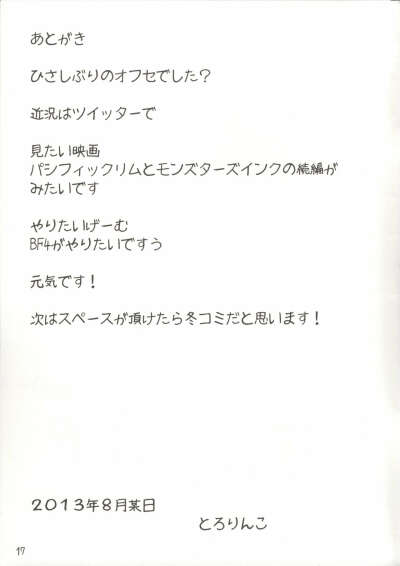 あとがき
ひさしぶりのオフセでした?
近況はツイッターで
見たい映画
パシフィックリムとモンズターズインクの続編が
みたいです
やりたいげーむ
BF4がやりたいですう
元気です!
次はスペースが頂けたら冬コミだと思います!
2013年8月某日
とろりんこ
17